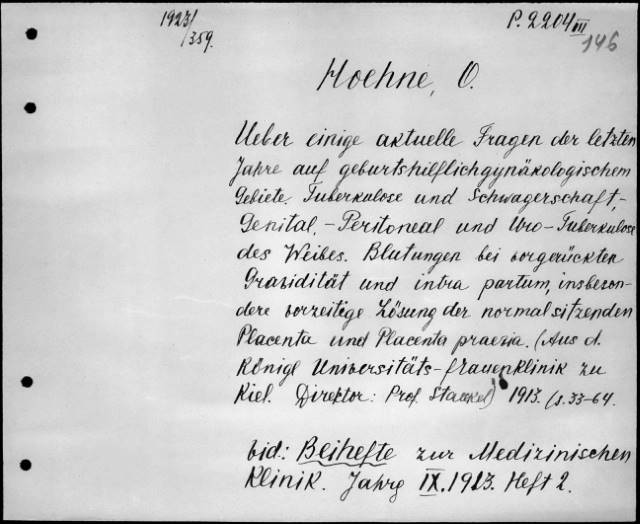 1923/359.
P. 2204 III
146
Hoehne, O.
Ueber einige aktuelle Fragen der letzten
Jahre auf geburtshilflichgynäkologischem
Gebiete. Tuberkulose und Schwagerschaft,-
Genital,-Peritoneal und Uro-Tuberkulose
des Weibes. Blutungen bei vorgerückten
Gravidität und intra partum, insbeson-
dere vorzeitige Lösung der normalsitzenden
Placenta und Placenta praevia. (Aus d.
Königl Universitäts-frauenklinik zu
Kiel. Direktor: Prof. Stoeckel) 1913. (s. 33-64.
bid: Beihefte zur Medizinischen
Klinik. Jahrg IX. 1913. Heft 2.